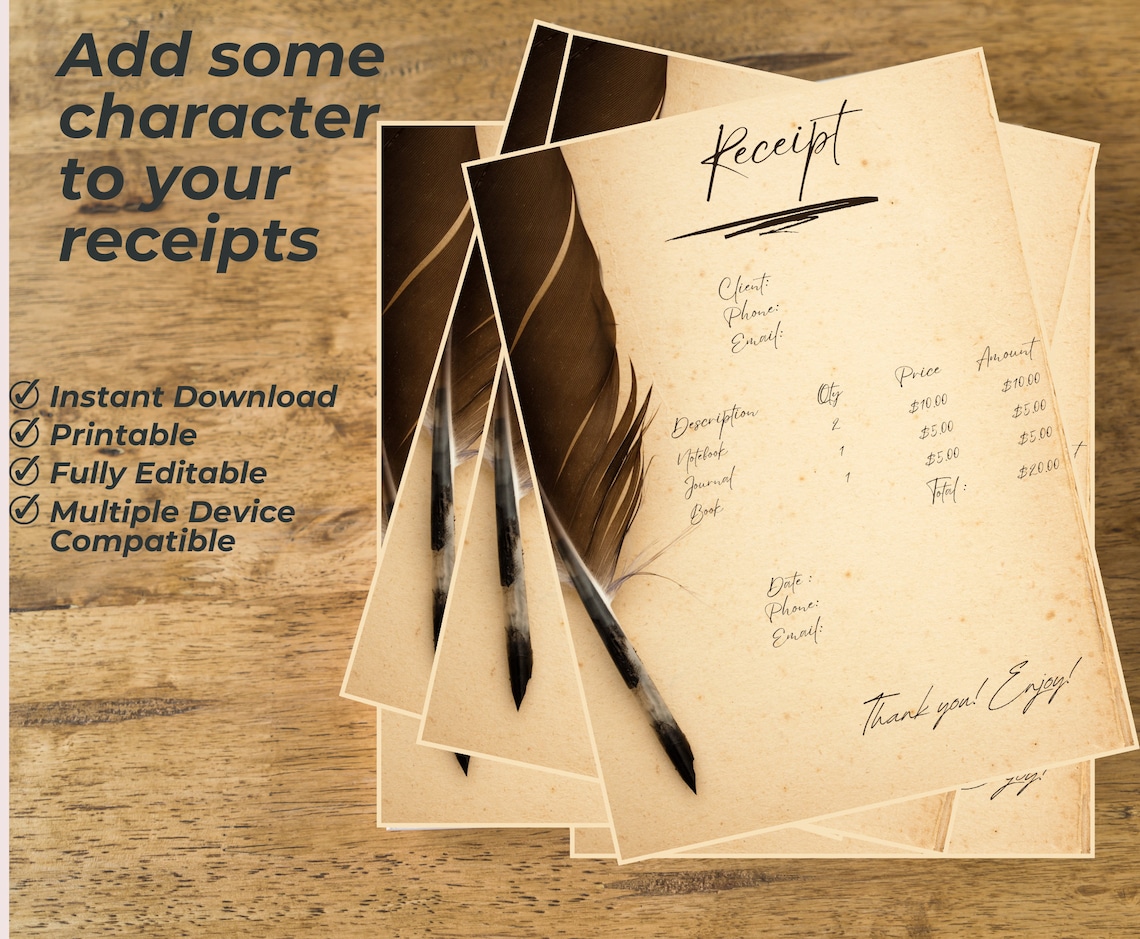 Add some
character
to your
receipts
Instant Download
Printable
Fully Editable
Multiple Device
Compatible
Receipt
Client:
Phone:
Email:
Description Qty Price Amount
Notebook 2 $10.00 $10.00
Journal 1 $5.00 $5.00
Book 1 $5.00 $5.00
Total : $20.00
Date :
Phone:
Email:
Thank you! Enjoy!